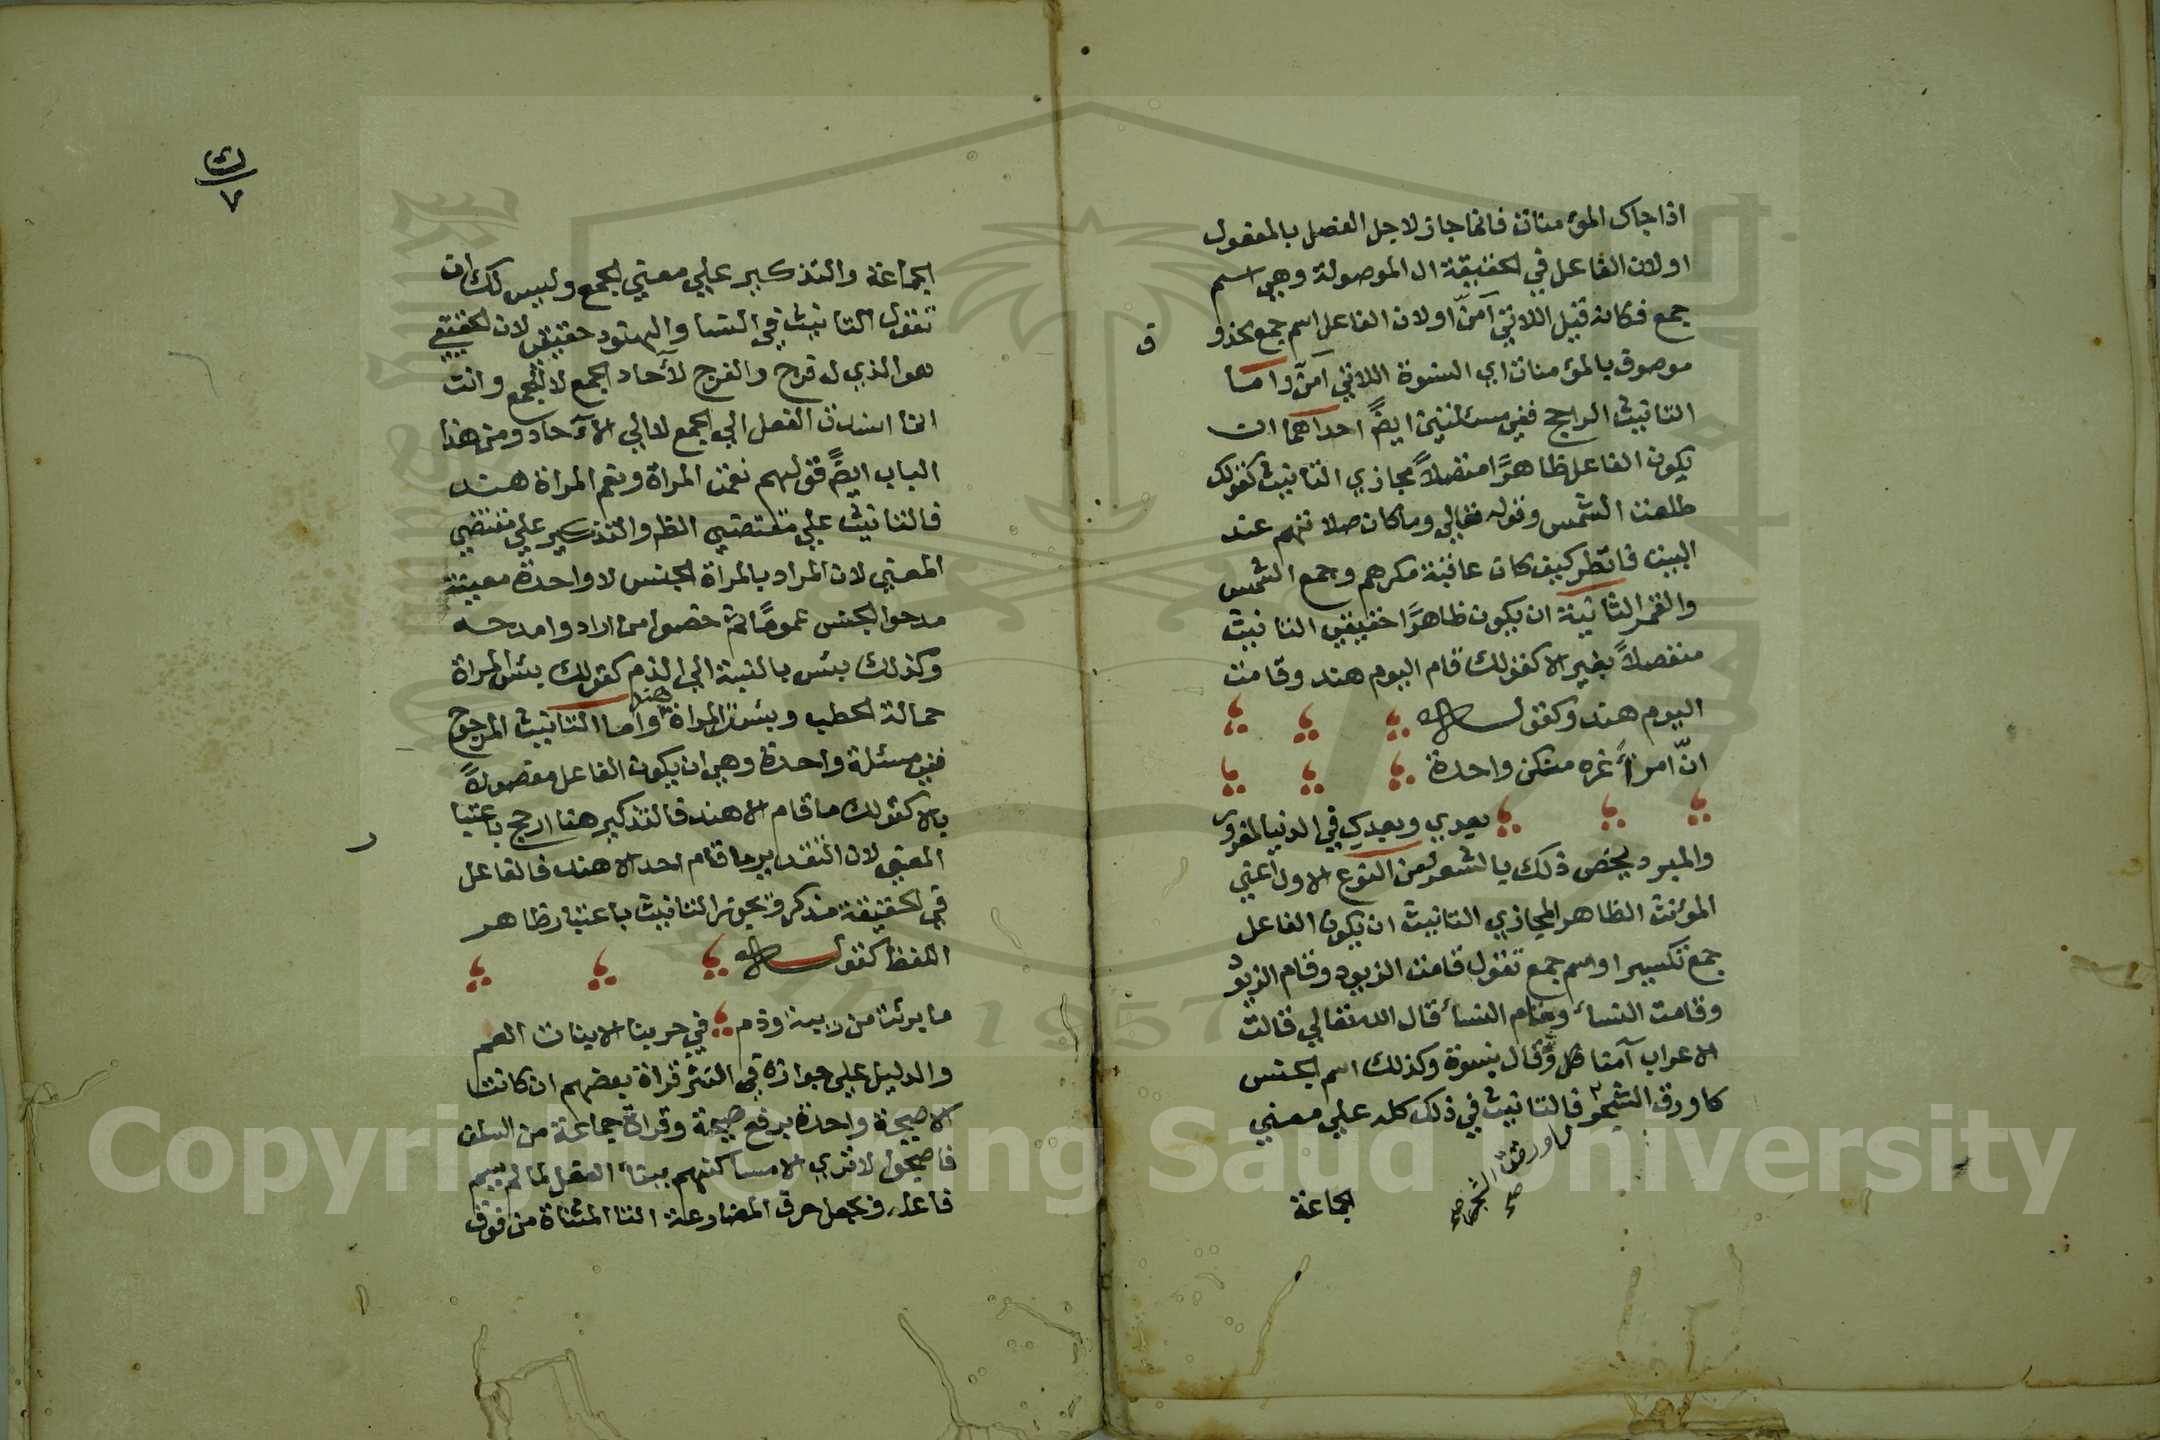 اذا جاك المؤمنات فانما جاز لاجل الفصل بالمفعول
او لان الفاعل في الحقيقة ال الموصولة وهي اسم
جمع فكانه قيل اللاتي آمنّ او لان الفاعل اسم جمع محذو
ق
موصوف بالمؤمنات اي النسوة اللاتي آمنّ واما
التانيث الراجح ففي مسئلتين ايضً احداهما ان
يكون الفاعل ظاهرًا متصلاً مجازي التانيث كقولك
طلعت الشمس وقوله تعالي وما كان صلاتهم عند
البيت فانظر كيف كان عاقبة مكرهم وجمع الشمس
والقمر الثانية ان يكون ظاهرًا حقيقي التانيث
منفصلاً بغير الا كقولك قام اليوم هند وقامت
اليوم هند وكقولـــه
انّ امرأً غره منكن واحدة
بعدي وبعدكِ في الدنيا لمغرور
والمبرد يخص ذلك بالشعر ومن النوع الاول اعني
المؤنث الظاهر المجازي التانيث ان يكون الفاعل
جمع تكسير او اسم جمع تقول قامت الزيود وقام الزيود
وقامت النساء وقام النساء قال الله تعالي قالت
الاعراب آمنا قل وقال نسوة وكذلك اسم الجنس
كاورق الشجر فالتانيث في ذلك كله علي معني
اورقت الشجر صح
الجماعة
ك
٧
الجماعة والتذكير علي معني الجمع وليس لك ان
تقول التانيث في النسا والهنود حقيقي لان الحقيقي
هو الذي له فرج والفرج لآحاد الجمع لا للجمع وانت
انما اسندت الفعل الي الجمع لا الي الآحاد ومن هذا
الباب ايضً قولهم نعمت المراة ونعم المراة هند
فالتانيث علي مقتضي الظ والتذكير علي مقتضي
المعني لان المراد بالمراة الجنس لا واحدة معينة
مدحوا الجنس عمومًا ثم خصوا من ارادوا مدحه
وكذلك بئس بالنسبة الي الذم كقولك بئس المراة
حمالة الحطب وبئست المراة هند واما التانيث المرجوح
ففي مسئلة واحدة وهي ان يكون الفاعل مفصولاً
بالا كقولك ما قام الا هند فالتذكير هنا ارجح باعتبا
ر
المعني لان التقدير ما قام احد الا هند فالفاعل
في الحقيقة مذكر ويجوز التانيث باعتبار ظاهر
اللفظ كقولـــه
ما برئت من ريبة وذم في حربنا الا بنات العم
والدليل علي جوازه في النثر قراة بعضهم ان كانت
الا صيحة واحدة برفع صيحة وقراة جماعة من السلف
فاصبحوا لا تري الا مساكنهم ببناء الفعل لما لم يسم
فاعله وبجعل حرف المضارعة التا المثناة من فوق